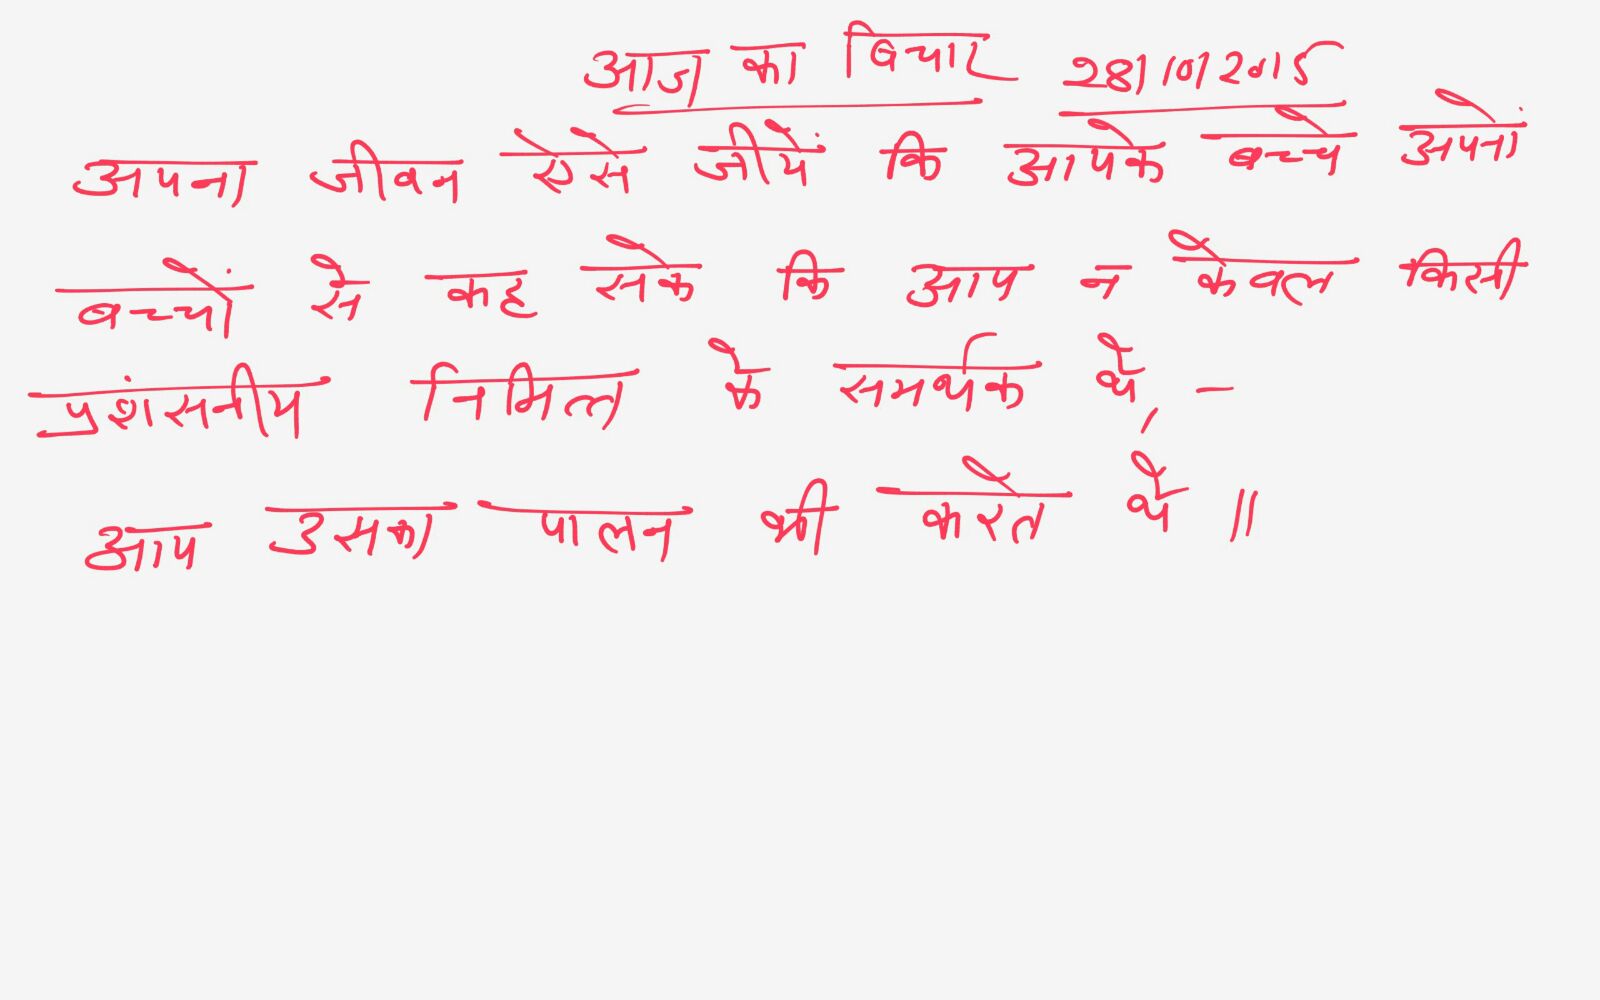 आज का विचार 28/10/2015
अपना जीवन ऐसे जीयें कि आपके बच्चे अपनों
बच्चों से कह सके कि आप न केवल किसी
प्रशंसनीय निमित्त के समर्थक थे, -
आप उसका पालन भी करते थे ||